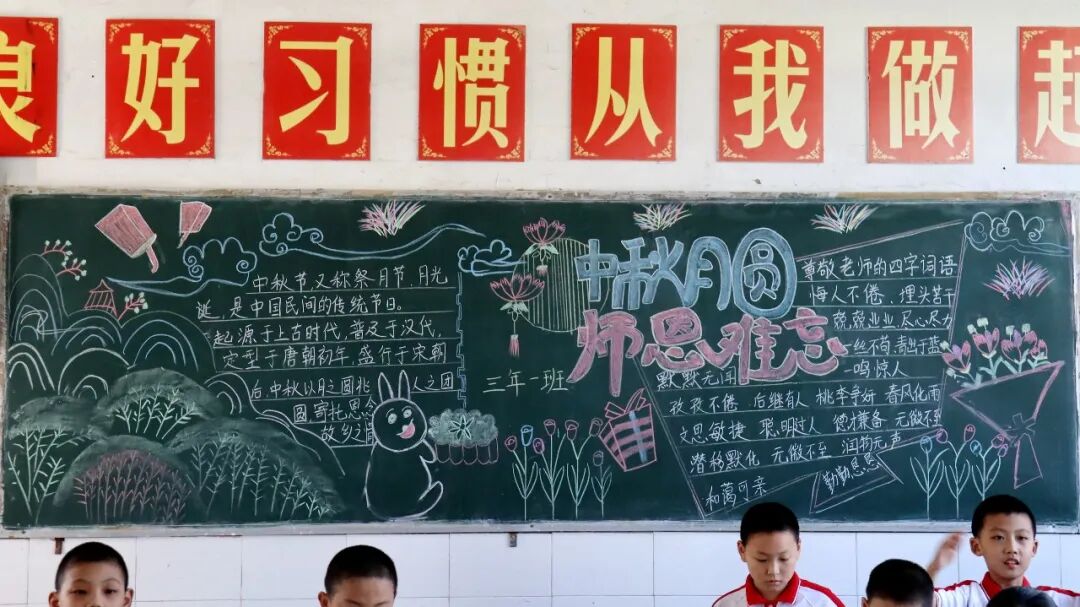 良好习惯从我做起
中秋节又称祭月节、月光
诞,是中国民间的传统节日。
起源于上古时代,普及于汉代,
定型于唐朝初年,盛行于宋朝
后.中秋以月之圆兆人之团
圆寄托思念
故乡之
三年一班
中秋月圆
师恩难忘
尊敬老师的四字词语
悔人不倦、埋头苦干
兢兢业业、尽心尽力
一丝不苟、青出于蓝
默默无闻 一鸣惊人
孜孜不倦、后继有人 桃李争妍 春风化雨
文思敏捷 聪明过人 德才兼备 无微不至
潜移默化 无微不至 润物无声
和蔼可亲 勤勤恳恳